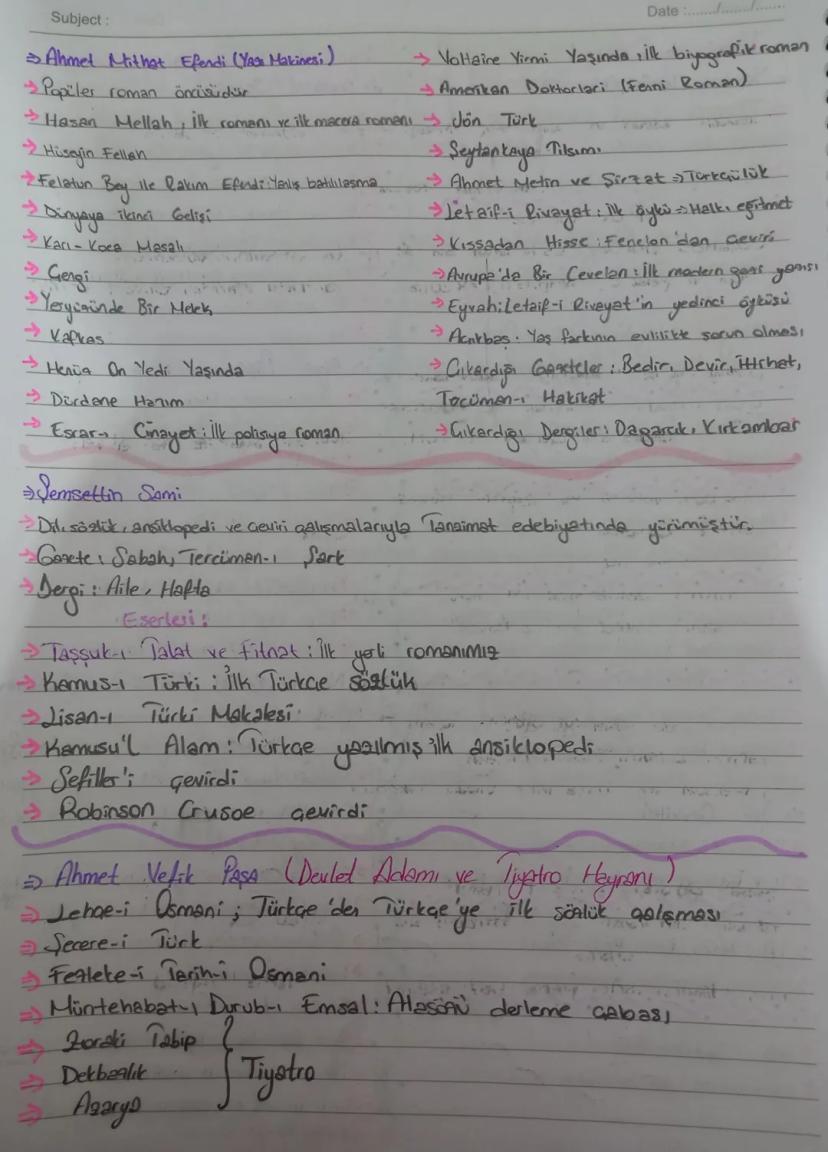 Subject :
Date :......./......./.......
⇒ Ahmet Mithat Efendi (Yazı Makinesi)
→ Popüler roman öncüsüdür
→ Hasan Mellah, ilk romanı ve ilk macera romanı
→ Hüseyin Fellah
→ Felatun Bey ile Rakım Efendi: Yanlış batılılaşma
→ Dünyaya ikinci Gelişi
→ Karı-Koca Masalı
→ Çengi
→ Yeryüzünde Bir Melek
→ Kafkas
→ Henüz On Yedi Yaşında
→ Dürdene Hanım
→ Esrar-ı Cinayet: İlk polisiye roman
→ Voltaire Yirmi Yaşında, ilk biyografik roman
→ Amerikan Doktorlari (Fenni Roman)
→ Jön Türk
→ Şeytankaya Tılsımı
→ Ahmet Metin ve Şirzat ⇒ Türkçülük
→ Letaif-i Rivayat: ilk öykü ⇒ Halkı eğitmet
→ Kıssadan Hisse: Fenelon'dan çeviri
→ Avrupa'da Bir Cevelan: İlk modern gezi yazısı
→ Eyvah: Letaif-i Rivayat'in yedinci öyküsü
→ Açıkbaş. Yaş farkının evlilikte sorun olması
→ Çıkardığı Gazeteler: Bedir, Devir, İttihat,
Tocüman-ı Hakikat
→ Çıkardığı Dergiler: Dagarcık, Kırkambar
⇒ Şemsettin Sami
→ Dil, sözlük, ansiklopedi ve çeviri çalışmalarıyla Tanzimat edebiyatında yürümüştür.
→ Gazete: Sabah, Tercüman-ı Şark
→ Dergi: Aile, Hafta
Eserleri:
→ Taşşuk-ı Talat ve Fitnat: İlk yerli romanımız
→ Kamus-ı Türki: İlk Türkçe sözlük
→ Lisan-ı Türki Makalesi
→ Kamusu'l Alam: Türkçe yazılmış ilk ansiklopedi
→ Sefiller'i çevirdi
→ Robinson Crusoe çevirdi
⇒ Ahmet Vefik Paşa (Devlet Adamı ve Tiyatro Hayranı)
⇒ Lehçe-i Osmani; Türkçe'den Türkçe'ye ilk sözlük çalışması
⇒ Şecere-i Türk
⇒ Fezleke-i Tarih-i Osmani
⇒ Müntehabat-ı Durub-ı Emsal: Atasözü derleme çabası
⇒ Zoraki Tabip
⇒ Dekbazlık } Tiyatro
⇒ Azarya